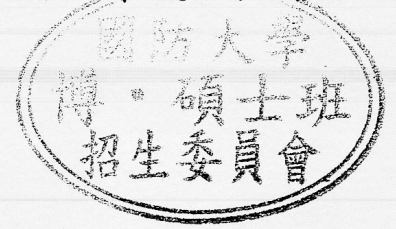 國防大學
博·碩士班
招生委員會